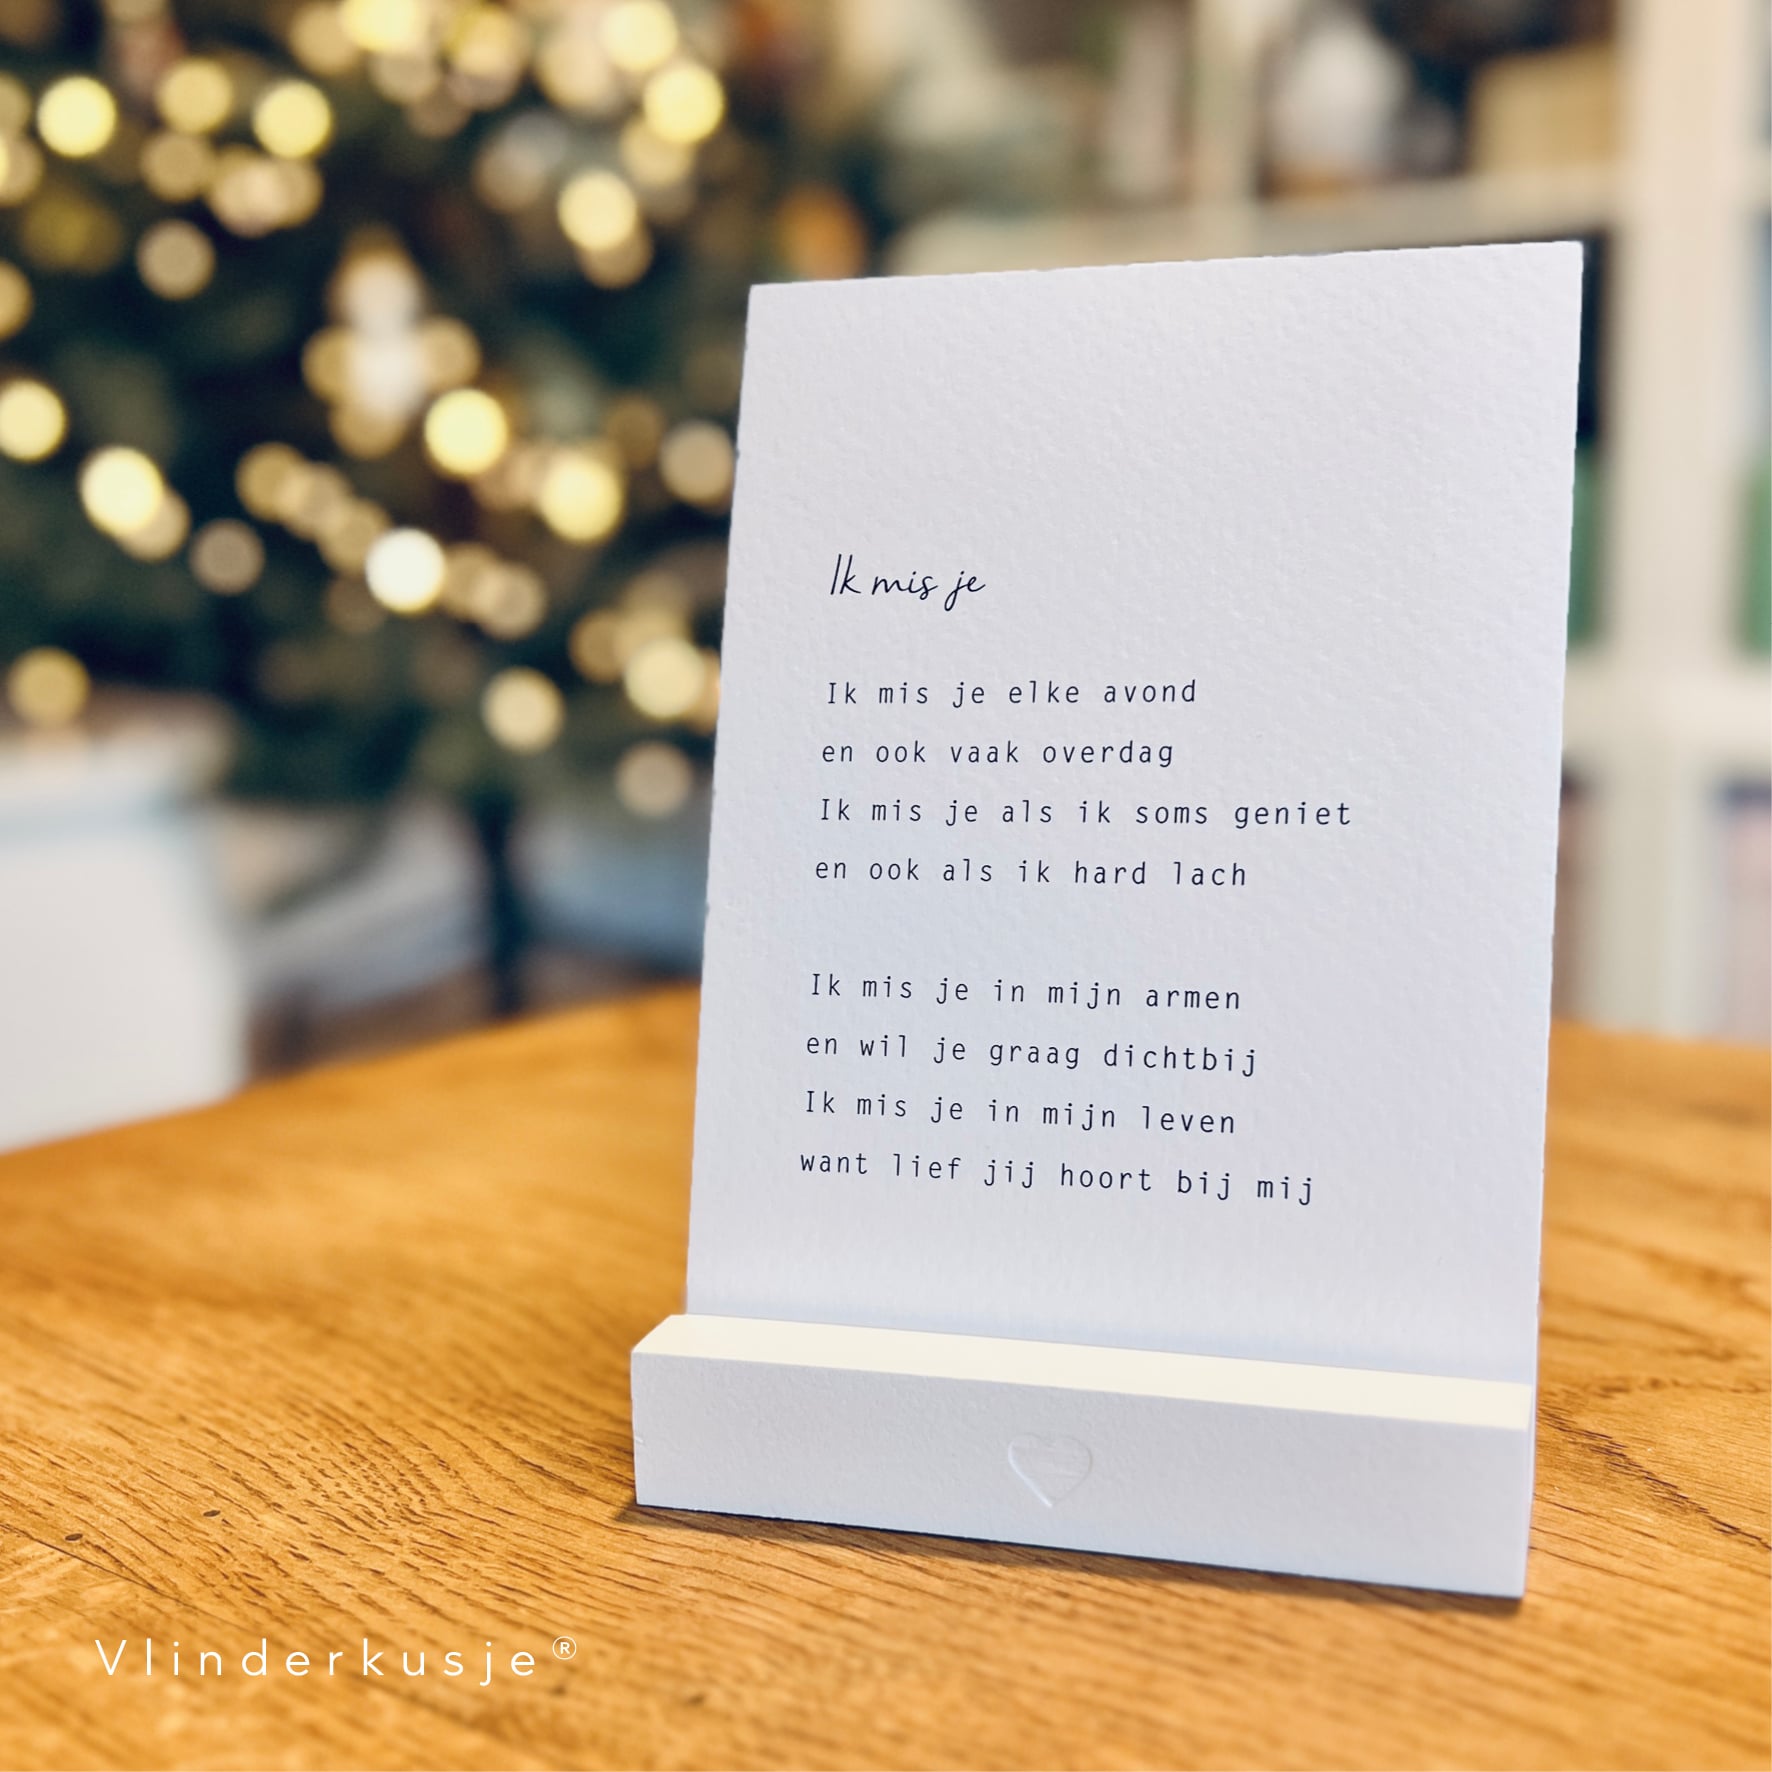 Ik mis je
Ik mis je elke avond
en ook vaak overdag
Ik mis je als ik soms geniet
en ook als ik hard lach
Ik mis je in mijn armen
en wil je graag dichtbij
Ik mis je in mijn leven
want lief jij hoort bij mij
Vlinderkusje®